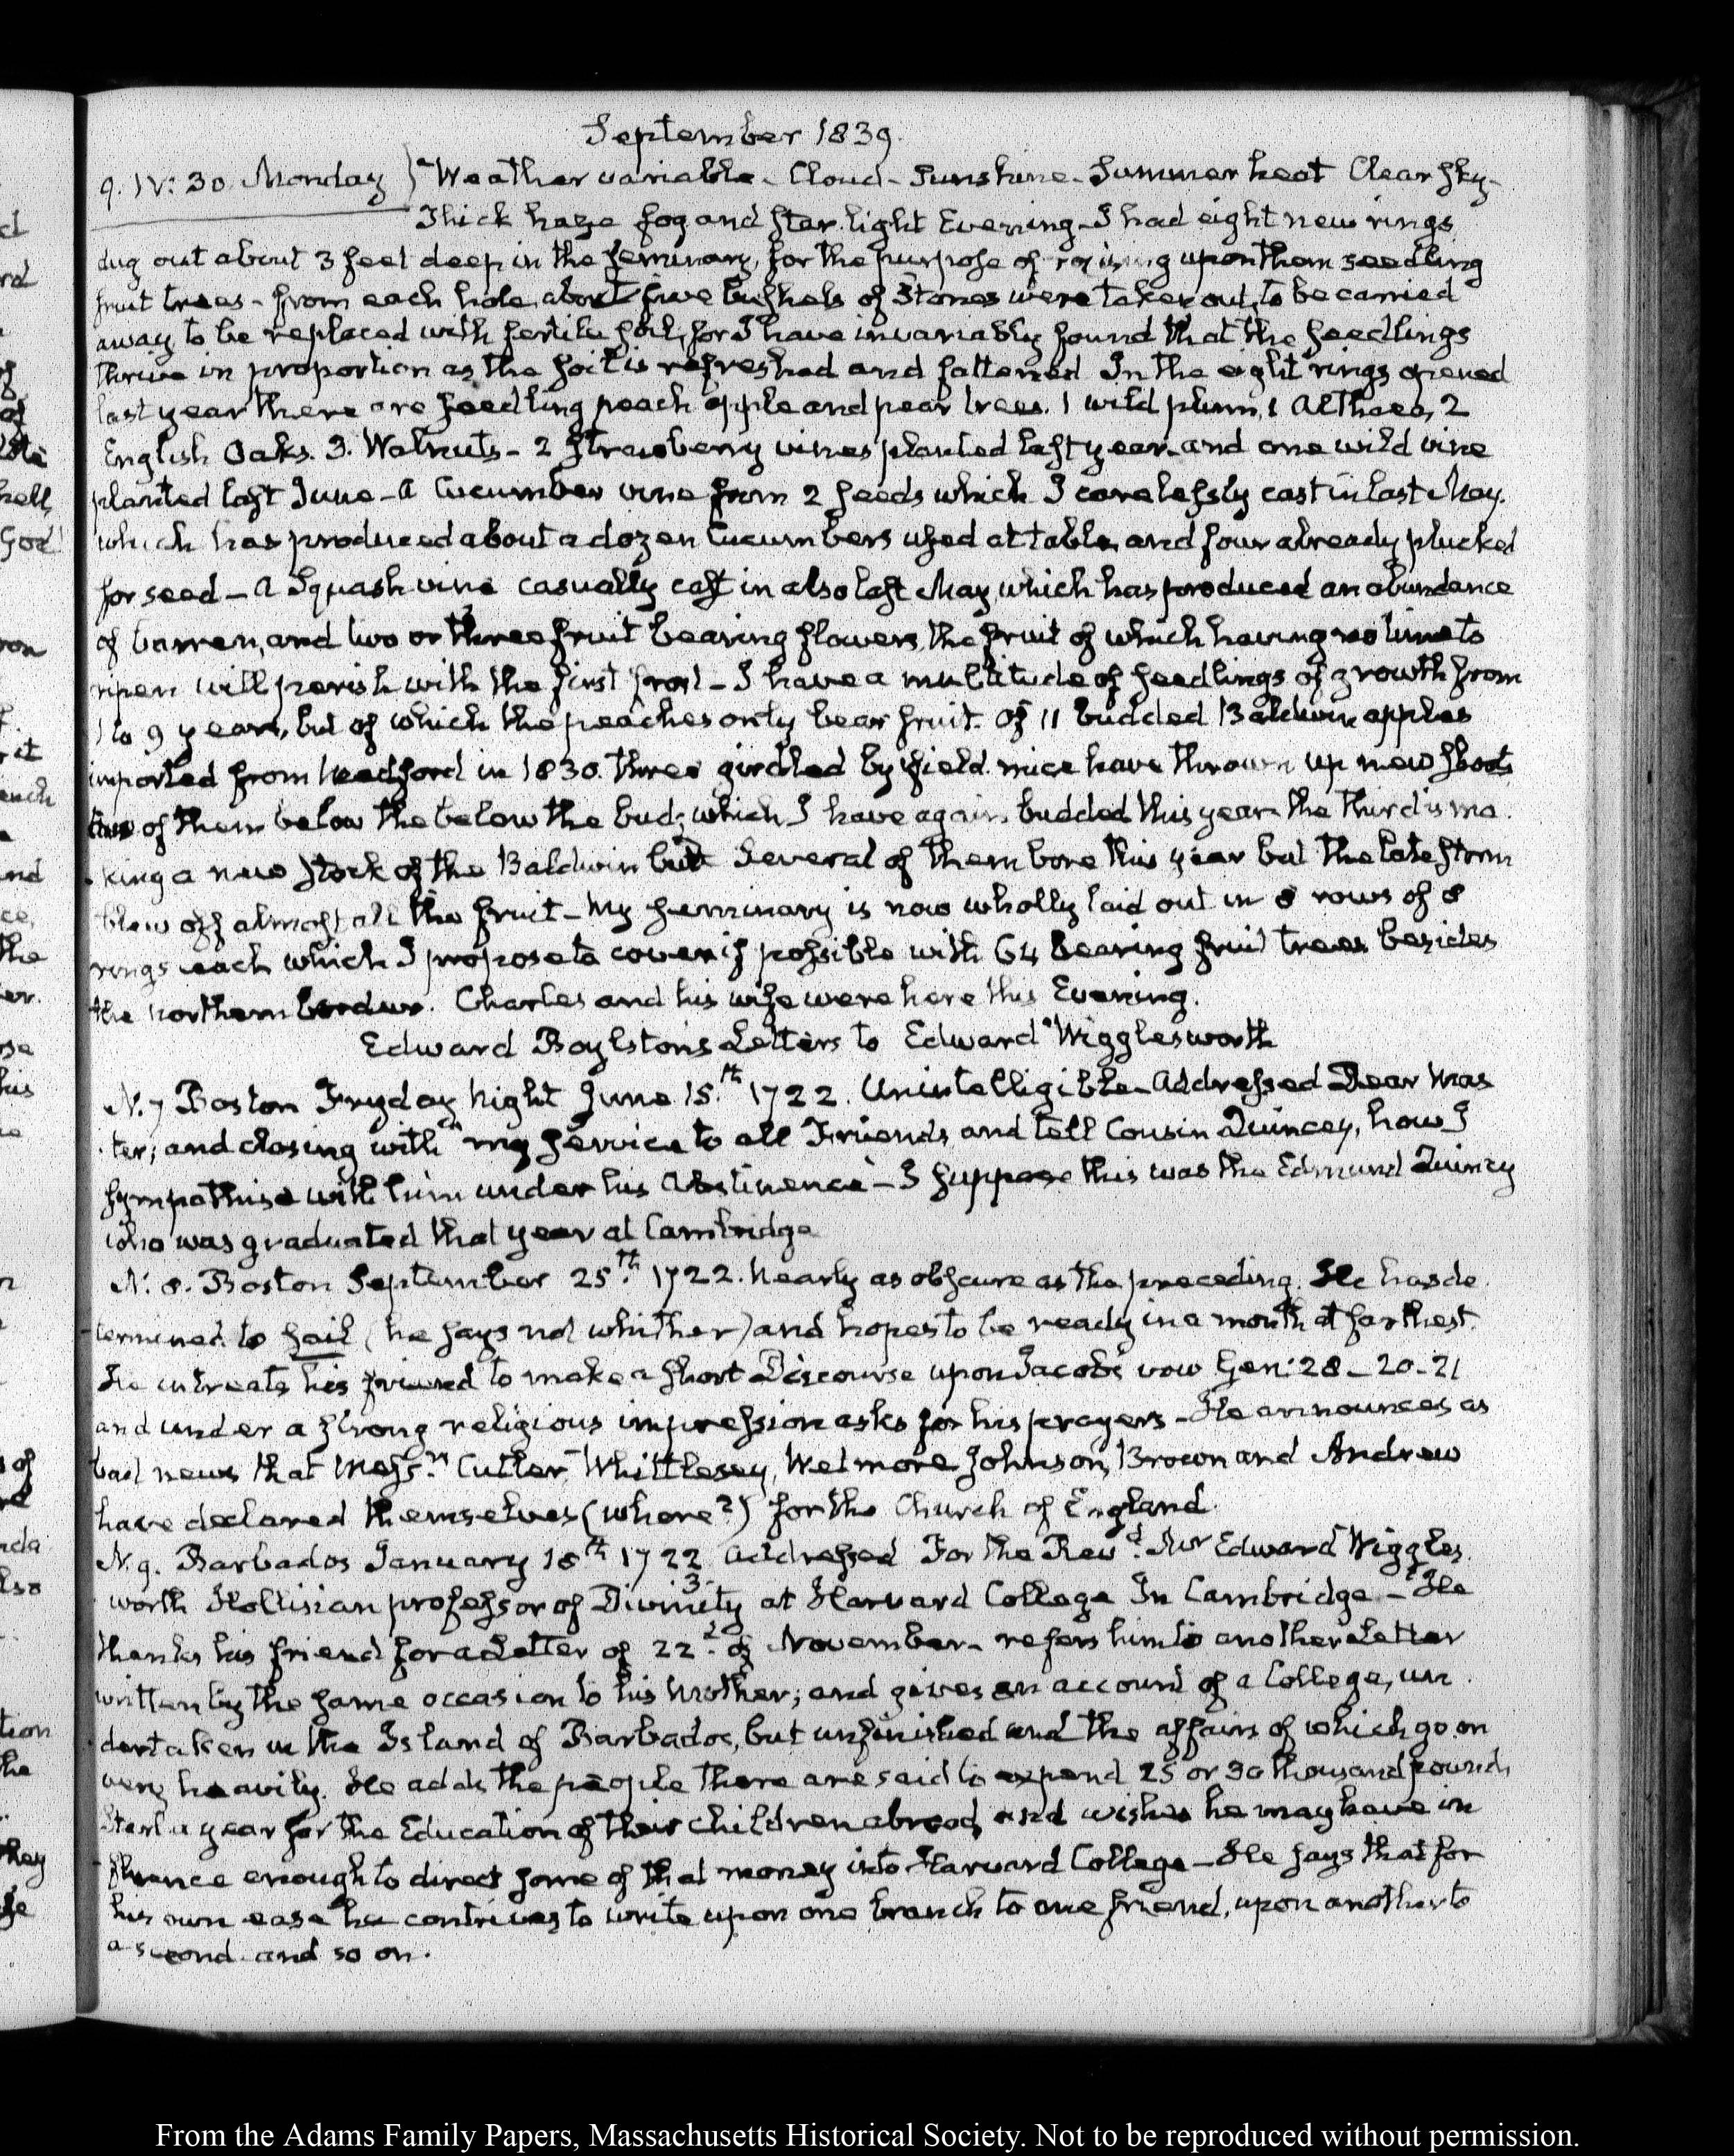 September 1839.
9. IV: 30. Monday } Weather variable - Cloud - Sunshine - Summer heat Clear sky -
Thick haze fog and star-light Evening - I had eight new rings
dug out about 3 feet deep in the seminary, for the purpose of raising upon them seedling
fruit trees - from each hole about five bushels of Stones were taken out, to be carried
away to be replaced with fertile soil, for I have invariably found that the seedlings
thrive in proportion as the soil is refreshed and fattened. In the eight rings opened
last year there are seedling peach apple and pear trees. 1 wild plum, 1 Althaea, 2
English Oaks. 3. Walnuts - 2 strawberry vines planted last year and one wild vine
planted last June - A Cucumber vine from 2 seeds which I carelessly cast in last May.
which has produced about a dozen Cucumbers used at table, and four already plucked
for seed - A Squash vine casually cast in also last May, which has produced an abundance
of barren, and two or three fruit bearing flowers, the fruit of which having no time to
ripen will perish with the first frost - I have a multitude of seedlings of growth from
1 to 9 years, but of which the peaches only bear fruit. Of 11 budded Baldwin apples
imported from Medford in 1830. three girdled by field-mice have thrown up new shoots
two of them below the below the bud; which I have again budded this year - the third is ma-
king a new stock of the Baldwin bud Several of them bore this year but the late storm
blew off almost all the fruit - My seminary is now wholly laid out in 8 rows of 8
rings each which I propose to cover if possible with 64 bearing fruit trees besides
the northern border. Charles and his wife were here this Evening.
Edward Boylston's Letters to Edward Wigglesworth
N. 7 Boston Fryday Night June 15.th 1722. Unintelligible - Addressed Dear Mas
ter; and closing with "my service to all Friends and tell Cousin Quincey, how I
sympathise with him under his Abstinence" - I suppose this was the Edmund Quincy
who was graduated that year at Cambridge
N. 8. Boston September 25.th 1722. Nearly as obscure as the preceding. He has de
termined to sail (he says not whither) and hopes to be ready in a month at farthest.
He intreats his friend to make a short Discourse upon Jacob's vow Gen: 28-20-21
and under a strong religious impression asks for his prayers - He announces as
bad news that Mess.rs Cutler, Whittlesey, Wetmore Johnson, Brown and Andrew
have declared themselves (where?) for the Church of England.
N. 9. Barbados January 18th 1722 Addressed For the Rev.d Mr Edward Wiggles
3.
worth Hollisian professor of Divinity at Harvard College In Cambridge - He
thanks his friend for a Letter of 22.d of November - refers him to another Letter
written by the same occasion to his Mother; and gives an account of a College, un
dertaken in the Island of Barbados, but unfinished and the affairs of which go on
very heavily. He adds the people there are said to expend 25 or 30 thousand pounds
Sterl a year for the Education of their children abroad, and wishes he may have in
fluence enough to direct some of that money into Harvard College - He says that for
his own ease he contrives to write upon one branch to one friend, upon another to
a second and so on.
From the Adams Family Papers, Massachusetts Historical Society. Not to be reproduced without permission.